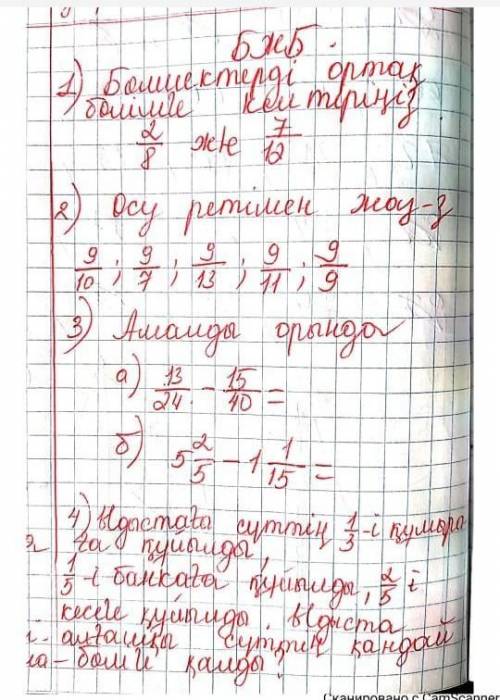 БЖБ.
1) Бөлшектерді ортақ
бөлімге келтеріңіз
2/8 және 7/12
2) Өсу ретімен жаз-з
9/10 ; 9/7 ; 9/13 ; 9/11 ; 9/9
3) Амалды орында
а) 13/24 - 15/40 =
б) 5 2/5 - 1 1/15 =
4) Ыдыстағы сүттің 1/3-і құмыра
ға құйылды,
1/5-і банкаға құйылды, 2/5 і
кесеге құйылды. Ыдыста
алғашқы сүттің қандай
бөлігі қалды?
Сканировано с CamScanner